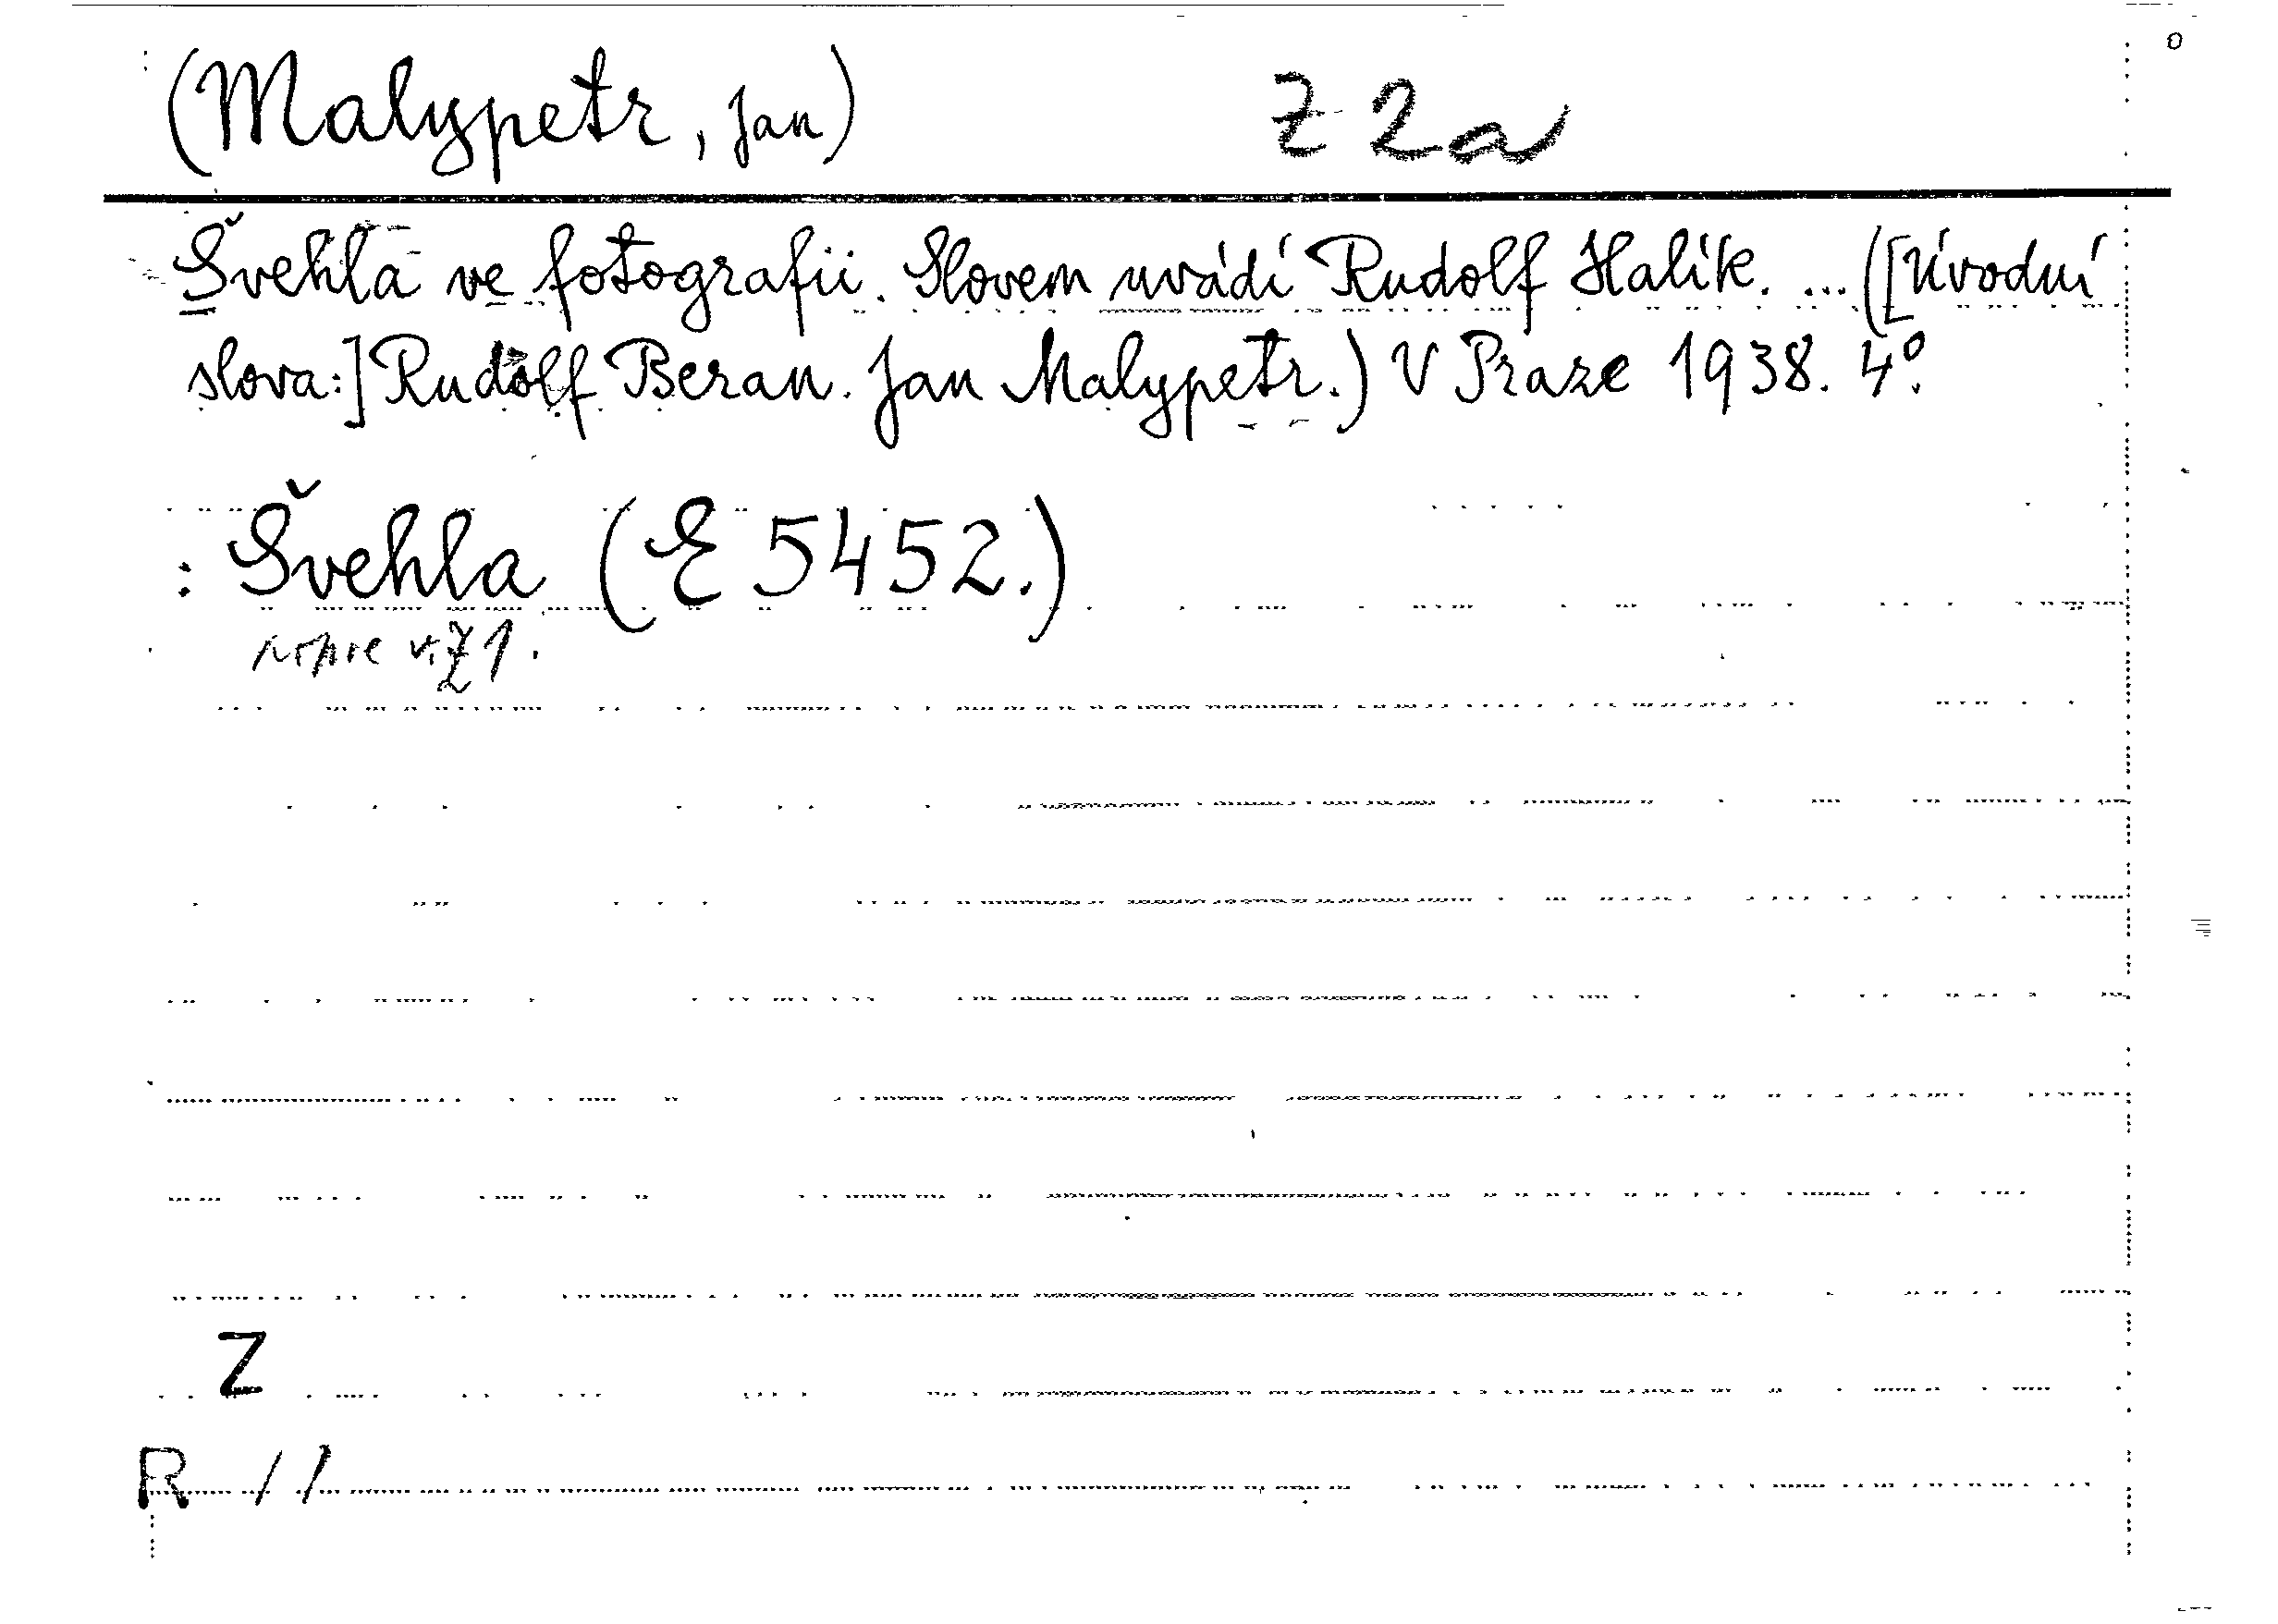 (Malypetr, Jan) Z 2a
Švehla ve fotografii. Slovem uvádí Rudolf Halík. ... ([Úvodní
slova:] Rudolf Beran. Jan Malypetr.) V Praze 1938. 4°.
: Švehla (E 5452.)
Z 1.
Z
R //